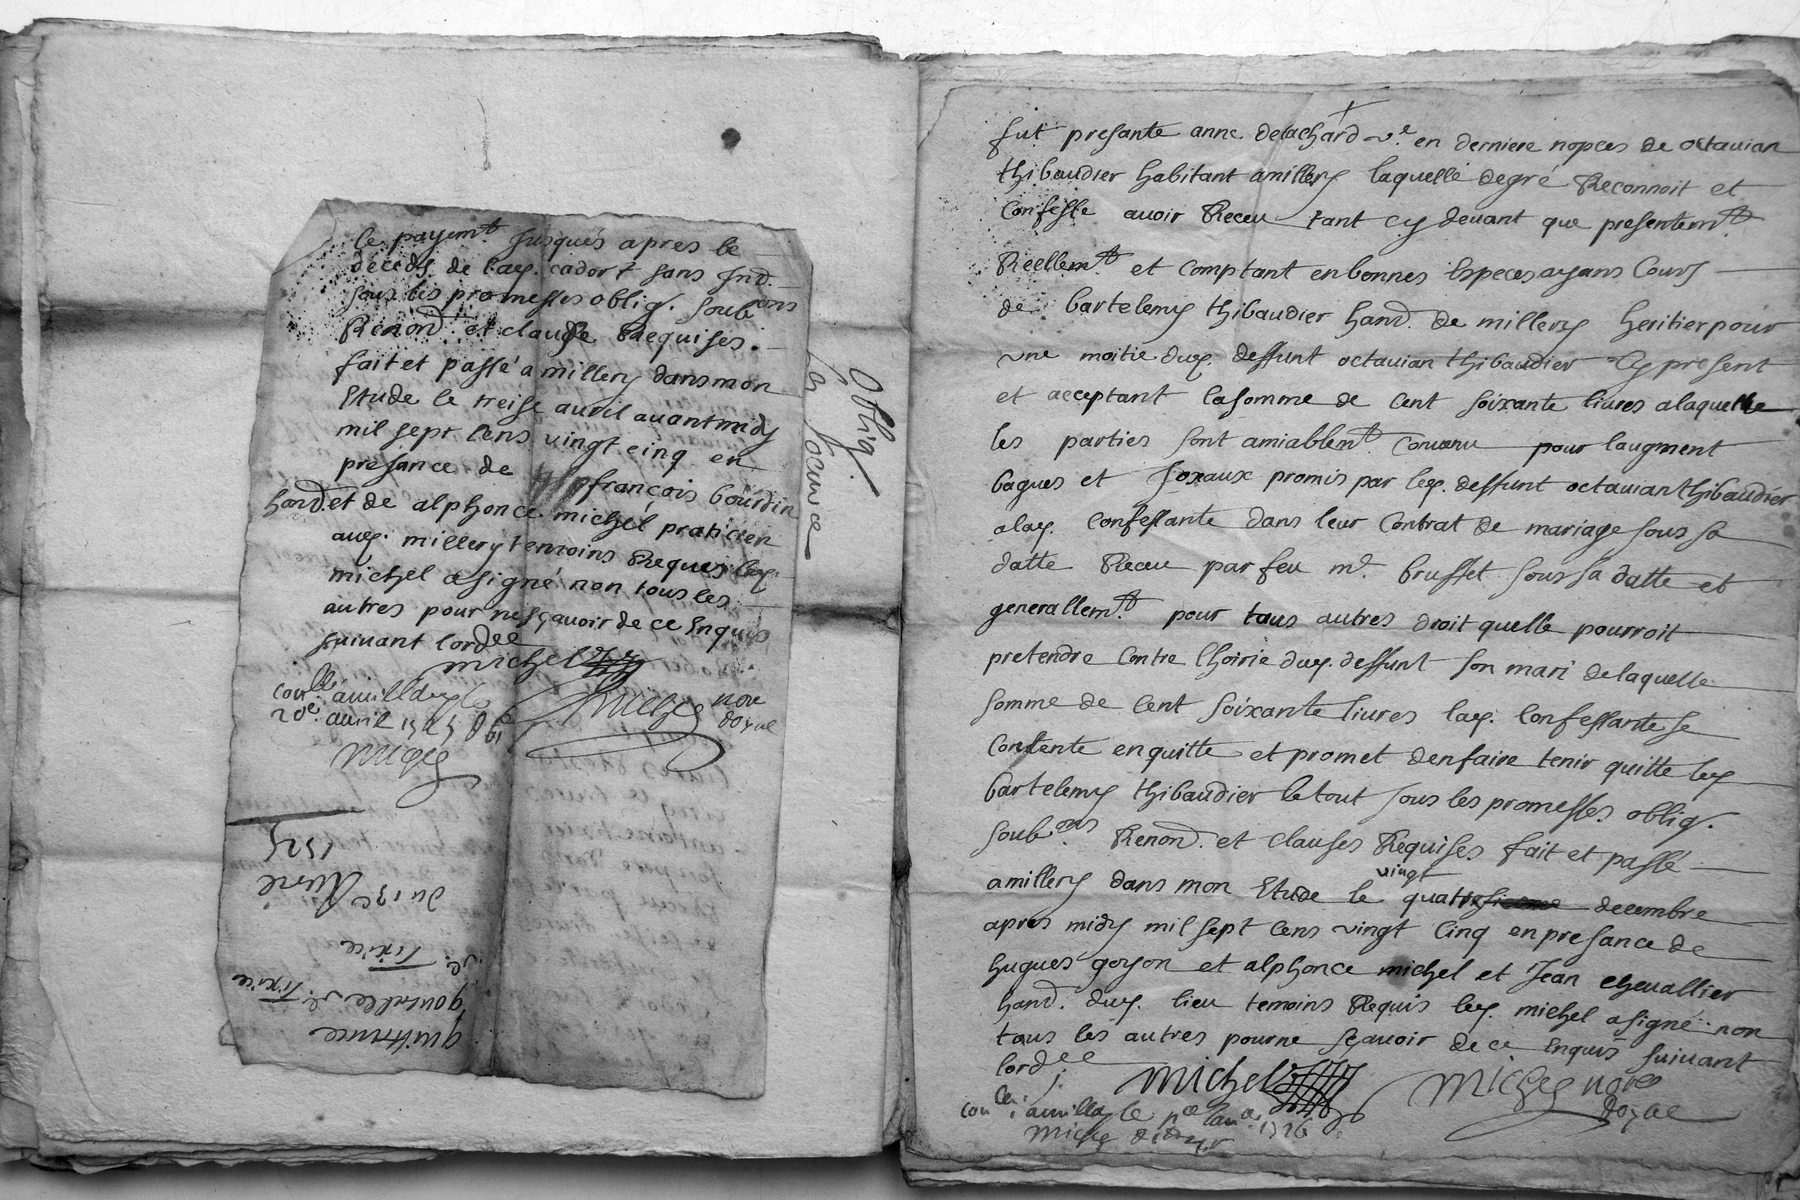 le payemt. Jusques apres le
deceds de lad. cador t sans Ind.
sous les promesses oblig. soubons
Renond. et clauses Requises.
fait et passé a millery dans mon
Etude le treise auril auant midy
mil sept Cens vingt cinq en
presance de françois bourdin
hand. et de alphonce michel praticien
aud. millery temoins Requis led.
michel a signé non tous les
autres pour ne sçauoir de ce Enquis
suiuant lordce
michel
michel nore
Royal
conlle. a milleri le
20e. auril 1725
michel
1725
du 13e Auril
quittance
Oblig.
fut presante anne delachard ve. en derniere nopces de octauian
thibaudier habitant a millery laquelle de gré Reconnoit et
Confesse auoir Receu tant cy deuant que presentemt.
Reellemt. et comptant en bonnes Especes ayans Cours
de bartelemy thibaudier hand. de millery heritier pour
vne moitie dud. deffunt octauian thibaudier Cy present
et acceptant la somme de Cent soixante liures a laquelle
les parties sont amiablemt. Conuenu pour laugment
bagues et Joyaux promis par led. deffunt octauian thibaudier
a lad. Confessante dans leur Contrat de mariage sous sa
datte Receu par feu me. brusset sous sa datte et
generallemt. pour tous autres droit quelle pourroit
pretendre Contre lhoirie dud. deffunt son mari de laquelle
somme de Cent soixante liures lad. Confessante se
Contente en quitte et promet den faire tenir quitte led.
bartelemy thibaudier le tout sous les promesses oblig.
soubons. Renond. et clauses Requises fait et passé
a millery dans mon Etude le vingt quattre decembre
apres midy mil sept Cens vingt Cinq en presance de
hugues goyon et alphonce michel et Jean cheuallier
hand. dud. lieu temoins Requis led. michel a signé non
tous les autres pour ne sçauoir de ce Enquis suiuant
lordce.
michel michel nore
Royal
conlle. a millery le pe. Janr. 1726
michel